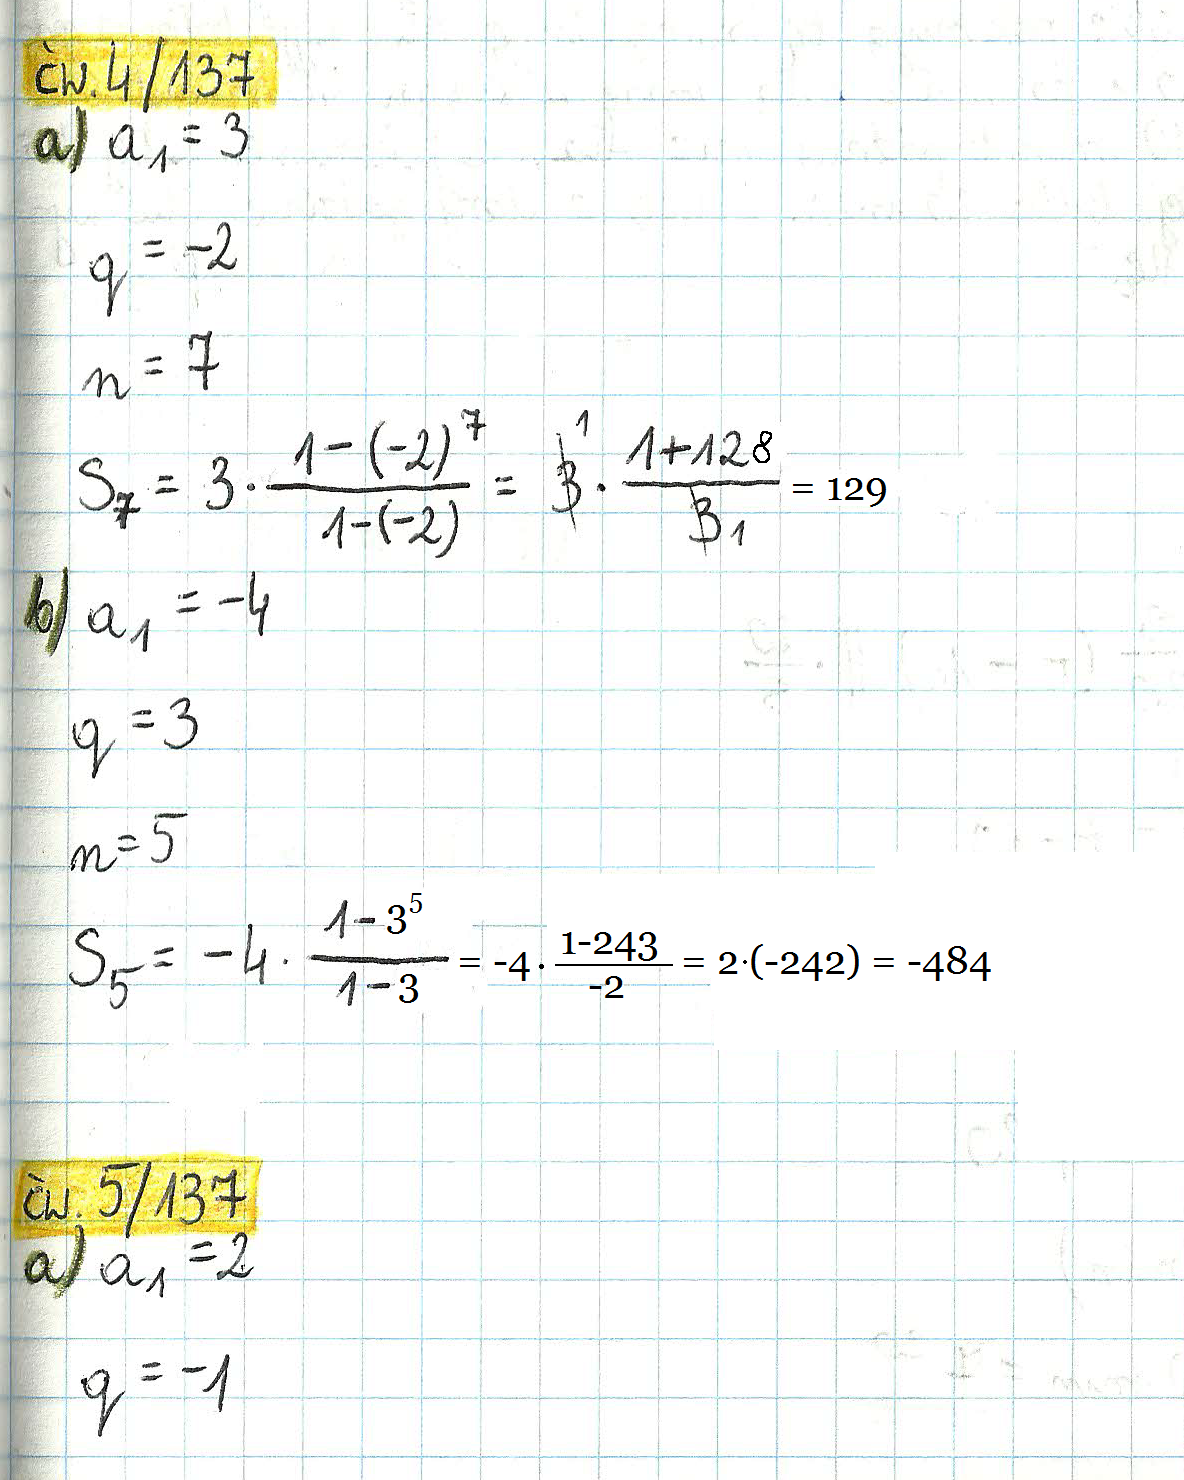 ćw. 4/137
a) a₁ = 3
q = -2
n = 7
S₇ = 3 · (1-(-2)⁷)/(1-(-2)) = 3¹ · (1+128)/(3₁) = 129
b) a₁ = -4
q = 3
n = 5
S₅ = -4 · (1-3⁵)/(1-3) = -4 · (1-243)/(-2) = 2·(-242) = -484
ćw. 5/137
a) a₁ = 2
q = -1